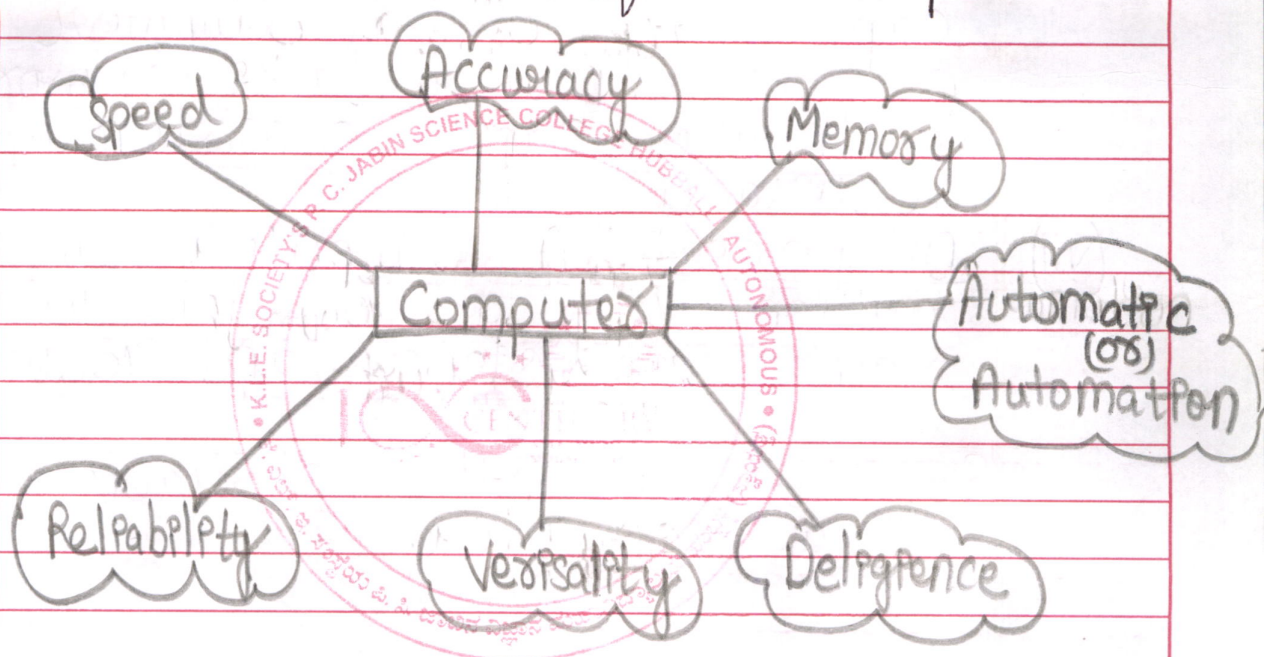 Speed
Accuracy
Memory
Computer
Automatic
(or)
Automation
Reliability
Verisality
Deligience
K.L.E. SOCIETY'S P. C. JABIN SCIENCE COLLEGE HUBBALLI AUTONOMOUS